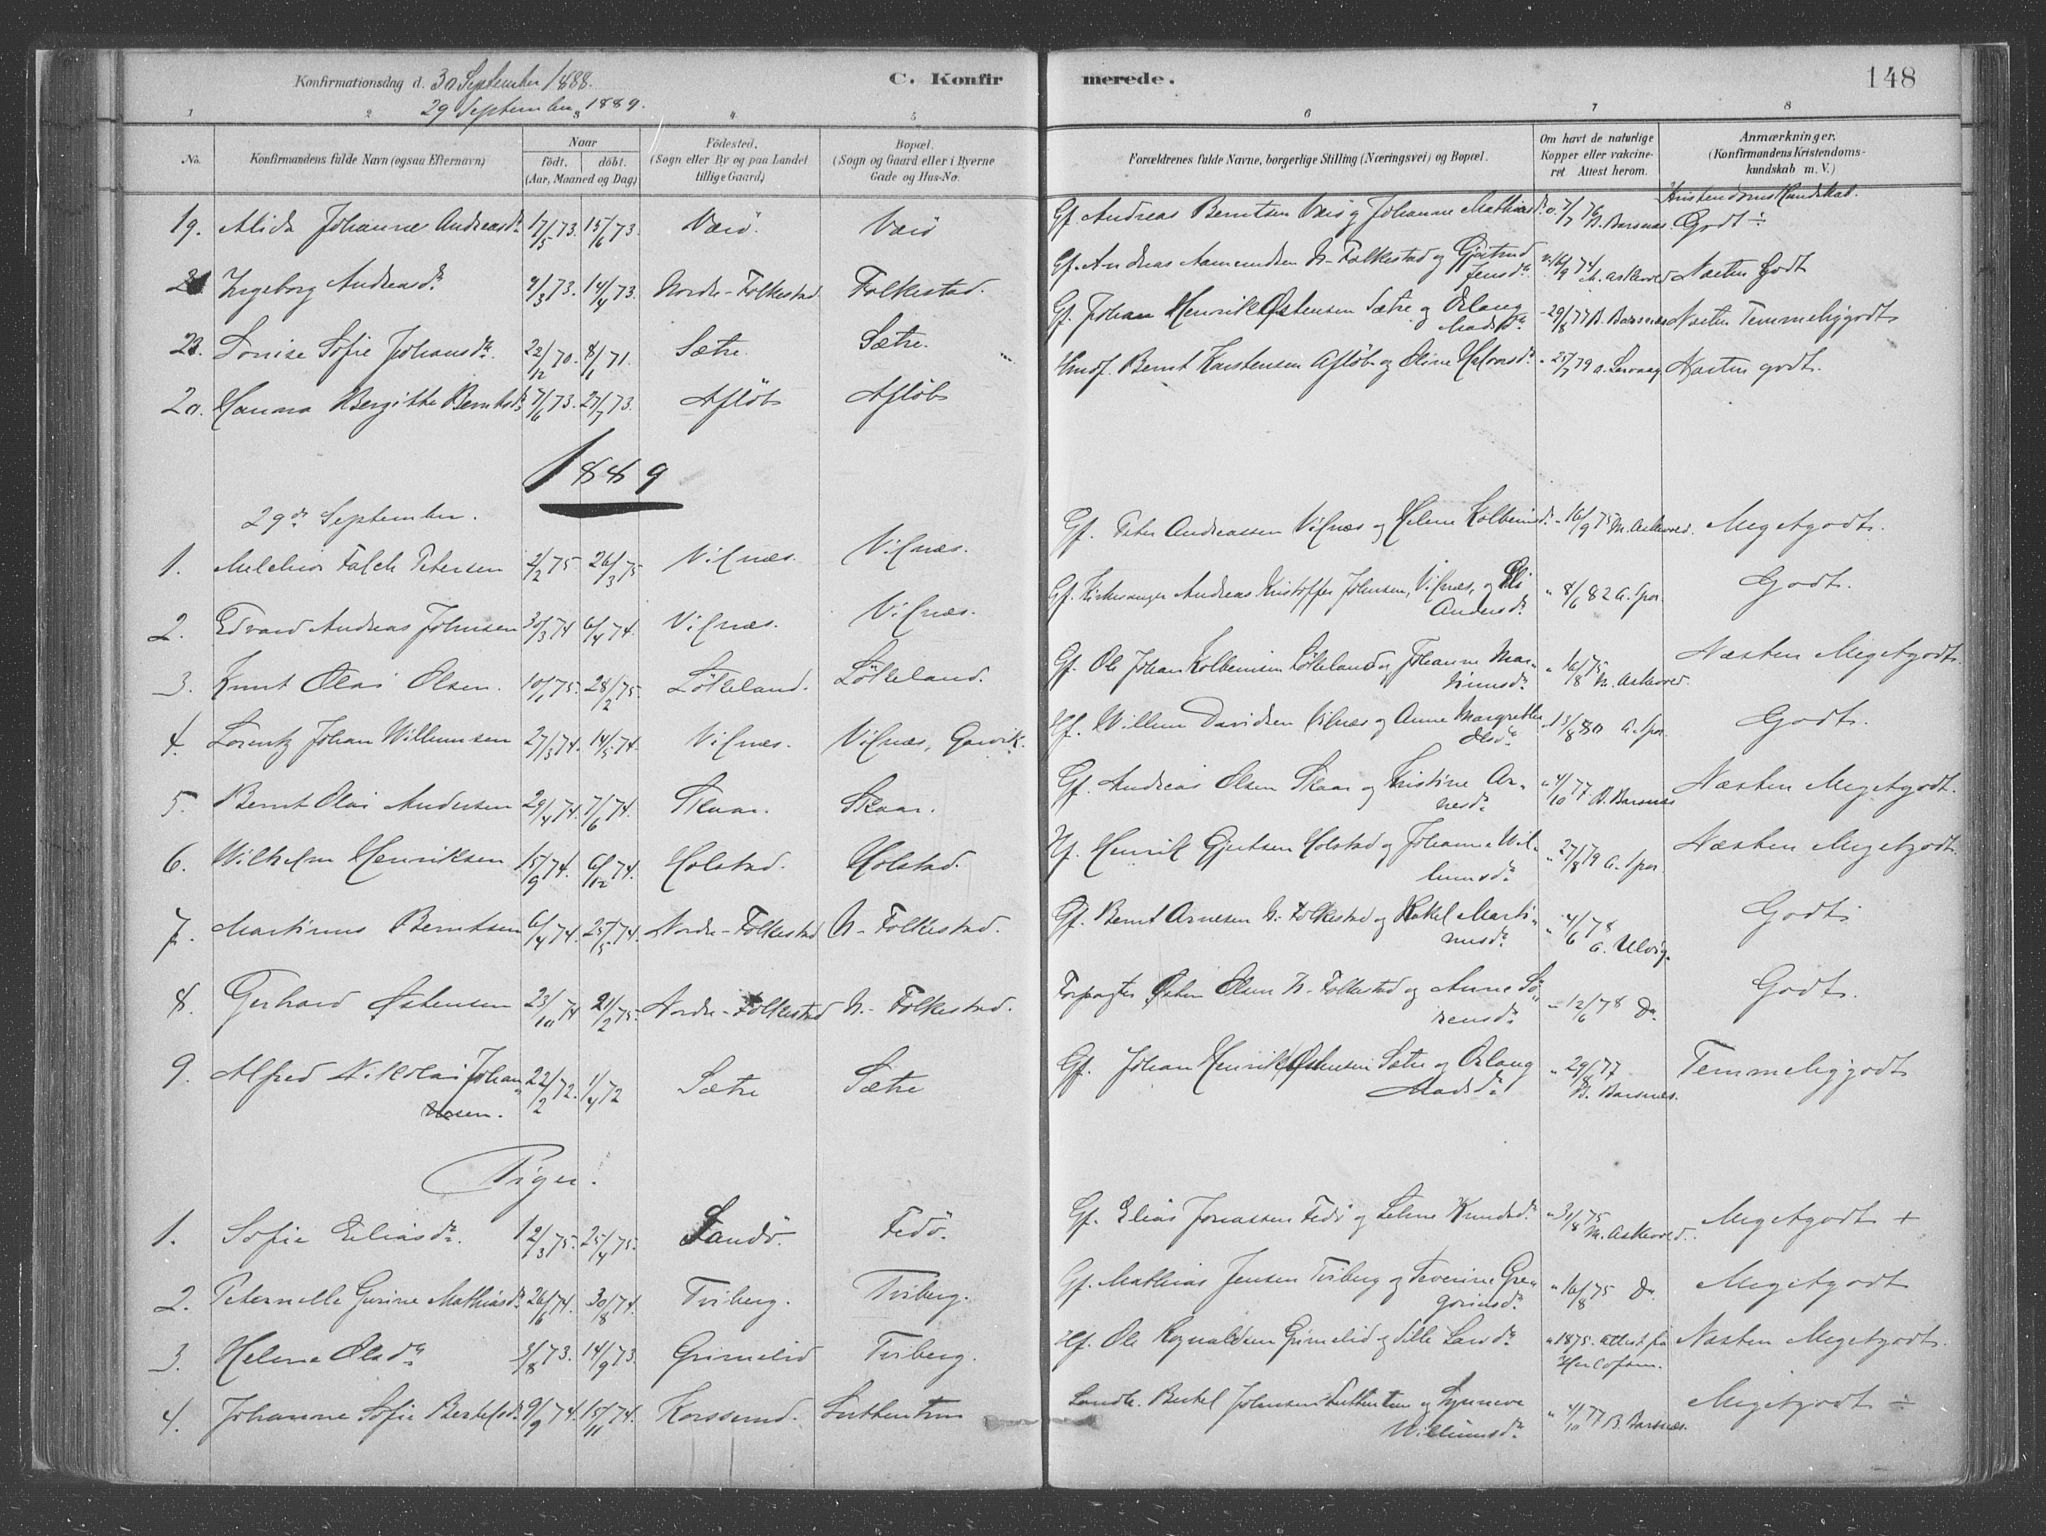 Konfirmationsdag d. 30 September 1888.
29 September 1889.
C. Konfirmerede.
148
1 2 3 4. 5 6 7 8
No. Konfirmandens fulde Navn (ogsaa Efternavn) Naar födt. döbt. (Aar, Maaned og Dag) Födested. (Sogn eller By og paa Landet tillige Gaard) Bopæl. (Sogn og Gaard eller i Byerne Gade og Hus-No. Forældrenes fulde Navne, borgerlige Stilling (Næringsvei) og Bopæl. Om havt de naturlige Kopper eller vakcineret Attest herom. Anmærkninger. (Konfirmandens Kristendomskundskab m. V.)
Kristendoms Kundskab.
19. Alida Johanne Andreasdr. 17/5 73. 15/6 73 Værö Værö Gf. Andreas Berntsen Værö og Johanne Mathiasdr. v. 7/7 76 B. Barsnæs. Godt ÷
Ingeborg Andreasdr. 9/3 73. 14/4 73. Nordre-Folkestad Folkestad. Gf. Andreas Aamundsen N-Folkestad og Gjertrud Jensdr. v. 16/9 74 M. Askevold Næsten Godt
Lovise Sofie Johansdr. 22/12 70. 8/1 71. Sætre. Sætre. Gf. Johan Henrik Østensen Sætre og Oslaug Madsdr. 29/8 77 B. Barsnæs Næsten Temmeliggodt
20. Hanna Bergitte Berntsdr. 7/6 73. 27/7 73. Aflöb Aflöb Hmdf. Bernt Karstensen Aflöb og Oline Halvorsdr. 25/7 79 Næsten godt.
1889
29de September.
1. Melchior Falch Petersen 2/2 75 26/3 75 Vilnæs. Vilnæs. Gf. Peter Andreassen Vilnæs og Helene Kolbeinsdr. 16/9 75 M. Askevold. Megetgodt.
2. Edvard Andreas Johnsen 30/3 74 6/4 74. Vilnæs. Vilnæs. Gf. Kirkesanger Andreas Kristoffer Johnsen, Vilnæs, og Eli Andersdr. " 8/6 82 G. Spor. Godt.
3. Knut Olai Olsen. 10/1 75. 28/2 75. Lökkeland. Lökkeland. Gf. Ole Johan Kolbeinsen Lökkeland og Johanne Martinusdr. " 16/8 75 M. Askevold. Næsten Megetgodt.
4. Lorentz Johan Willumsen 27/3 74. 14/5 74. Vilnæs. Vilnæs, Gaarvik. Hf. Willum Davidsen Vilnæs og Anne Margrethe Olsdr. 13/8 80 G. Spor. Godt.
5 Bernt Olai Andersen 29/4 74. 7/6 74. Skaar. Skaar. Gf. Andreas Olsen Skaar og Kristine Arnesdr. " 4/10 77 B. Barsnæs Næsten Megetgodt.
6. Wilhelm Henriksen 15/9 74. 6/12 74. Holstad. Holstad. Hf. Henrik Gjertsen Holstad og Johanne Willumsdr. " 27/8 79 G. Spor. Næsten Megetgodt.
7. Martinus Berntsen 6/4 74. 25/5 74. Nordre-Folkestad N-Folkestad. Gf. Bernt Arnesen N-Folkestad og Rakel Martinusdr. " 4/6 78 G. Ulvig. Godt
8. Gerhard Østensen 23/10 74 21/2 75. Nordre-Folkestad N-Folkestad. Forpagter Østen Olsen N-Folkestad og Anne Sörensdr. " 12/6 78 Do. Godt.
9. Alfred Nikolai Johannesen. 22/2 72. 1/4 72 Sætre Sætre Gf. Johan Henrik Østensen Sætre og Oslaug Madsdr. " 29/8 77 B. Barsnæs. Temmeliggodt
Piger.
1. Sofie Eliasdr. 12/3 75. 25/4 75. Sandö. Fedö. Gf. Elias Jonassen Fedö og Seline Knudsdr. " 31/8 75 M. Askevold. Megetgodt +
2. Peternelle Gurine Mathiasdr. 26/6 74. 30/8 74. Tviberg. Tviberg. Gf. Mathias Jensen Tviberg og Severine Gregoriusdr. " 16/8 75 Do. Megetgodt
3. Helene Olsdr. 3/8 73. 14/9 73. Grimelid Tviberg. Hf. Ole Rognaldsen Grimelid og Sille Larsdr. " 1875. Attest fra Næsten Megetgodt.
4. Johanne Sofie Bertelsdr. 9/9 74. 15/11 74. Korssund. Luttentun Bertel Johnsen Luttentun og Synneve Willumsdr. " 4/10 77 B. Barsnæs. Megetgodt ÷